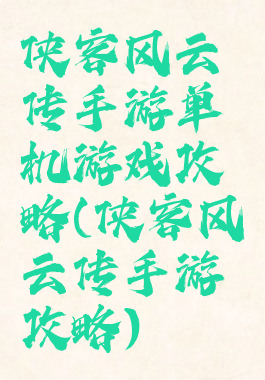 侠客风云
传手游单
机游戏攻
略(侠客风
云传手游
攻略)